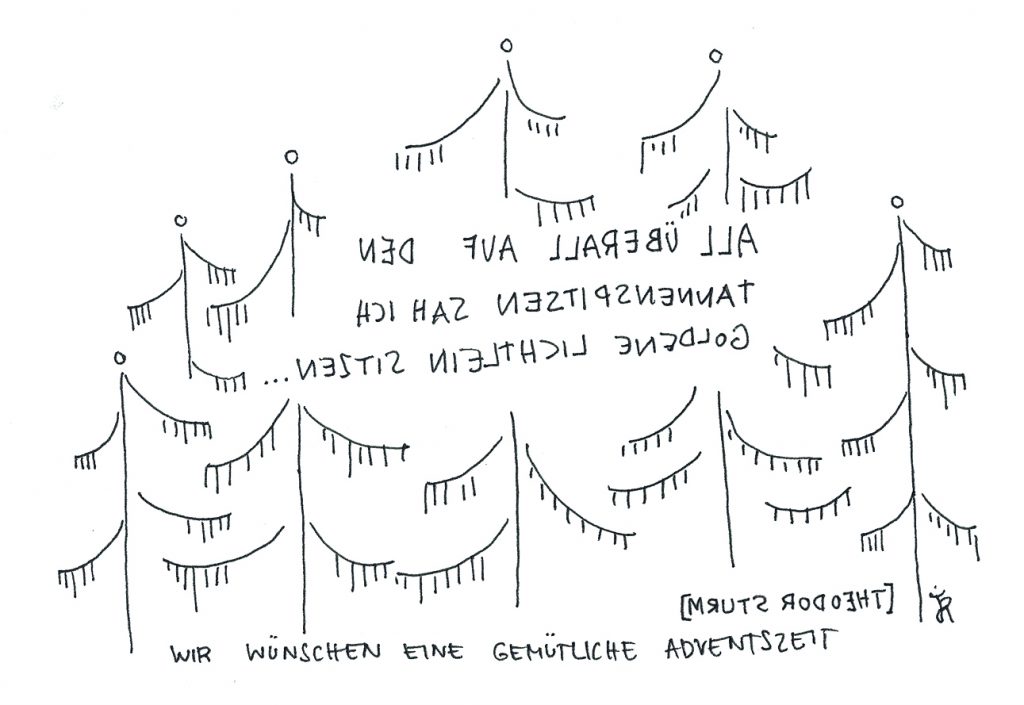 ALL ÜBERALL AUF DEN
TANNENSPITZEN SAH ICH
GOLDENE LICHTLEIN SITZEN...
[THEODOR STURM]
WIR WÜNSCHEN EINE GEMÜTLICHE ADVENTSZEIT